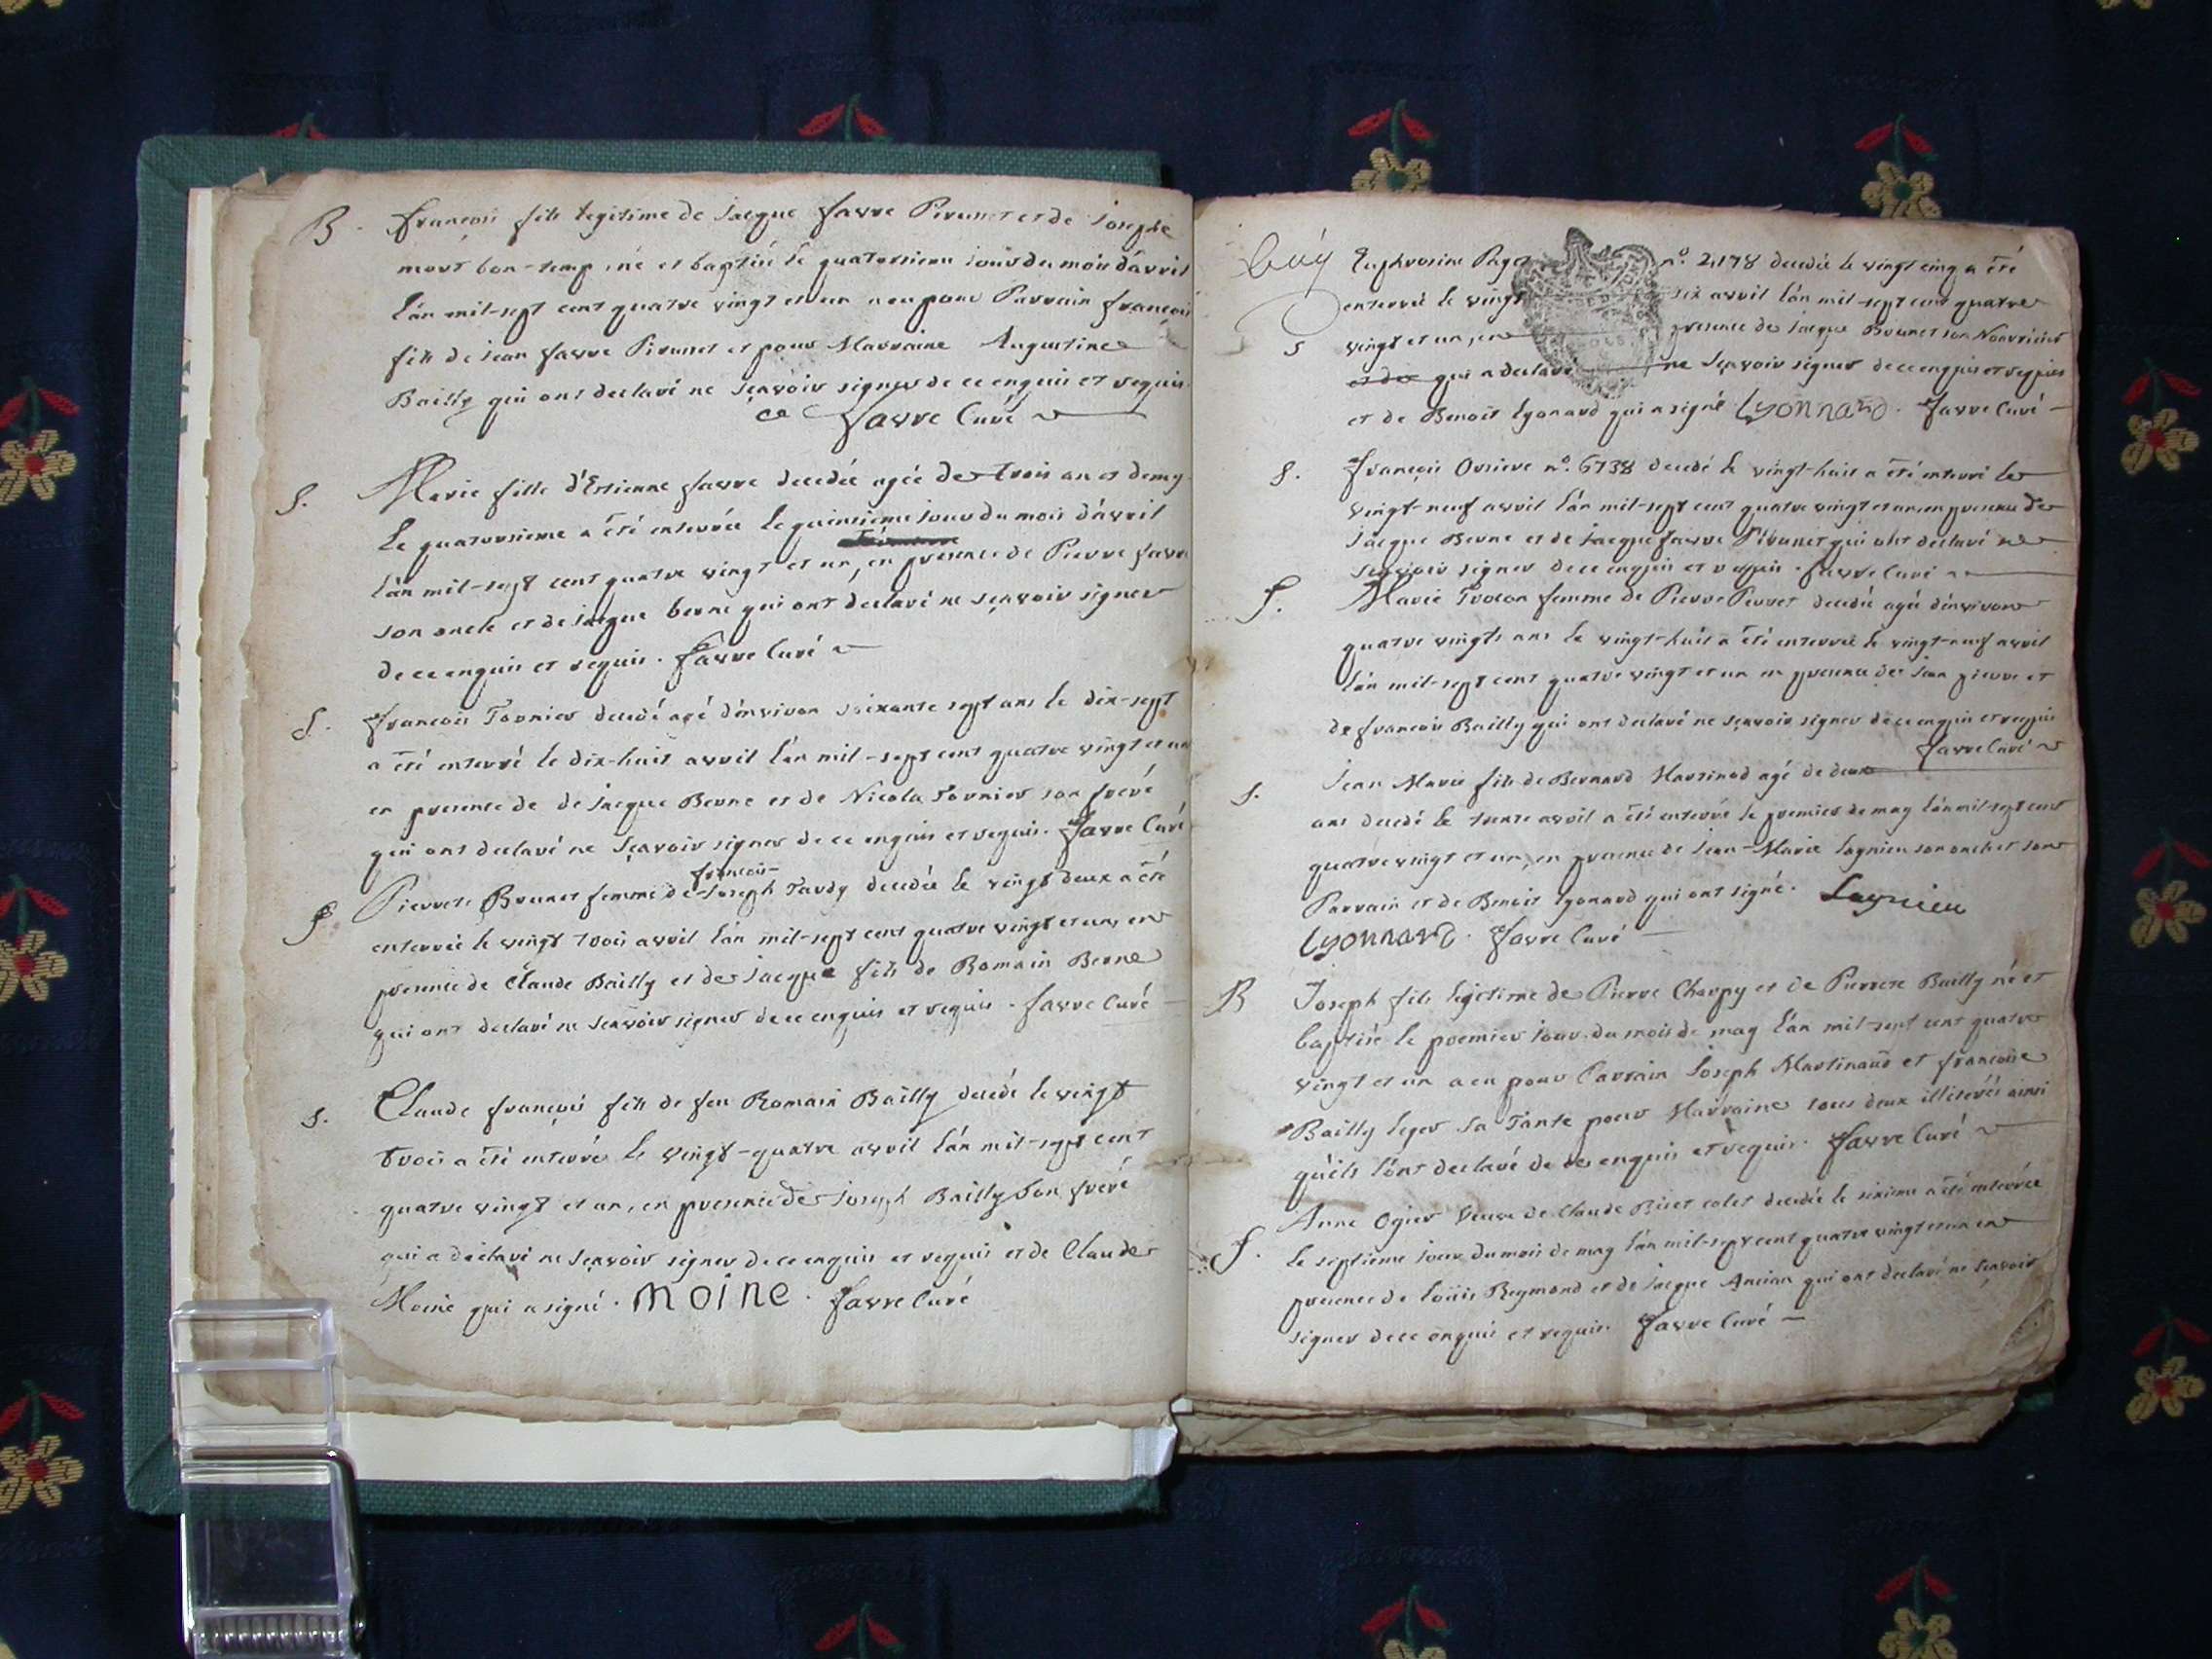 B. françois fils legitime de Jacque favre Pirunet et de Josephe
mort bon-temp, né et baptisé le quatorsieme jour du mois d'avril
l'an mil-sept cent quatre vingt et un a eu pour Parrain françois
fils de jean favre Pirunet et pour Marraine Augustine
Bailly qui ont declaré ne sçavoir signer de ce enquis et requis.
favre Curé
S. Marie fille d'Estienne favre decedée agée de trois an et demy
le quatorsieme a été enterrée le quinsieme jour du mois d'avril
l'an mil-sept cent quatre vingt et un, en presence de Pierre favre
son oncle et de jacque berne qui ont declaré ne sçavoir signer
de ce enquis et requis. favre Curé
S. françois Tornier decedé agé d'environ soixante sept ans le dix-sept
a été enterré le dix-huit avril l'an mil-sept cent quatre vingt et un
en presence de de jacque Berne et de Nicolas Tornier son frere
qui ont declaré ne sçavoir signer de ce enquis et requis. favre Curé
françois
S. Pierrete Brunet femme de Joseph Tardy decedée le vingt deux a été
enterrée le vingt trois avril l'an mil-sept cent quatre vingt et un, en
presence de Claude Bailly et de jacque fils de Romain Berne
qui ont declaré ne sçavoir signer de ce enquis et requis. favre Curé
S. Claude françois fils de feu Romain Bailly decedé le vingt
trois a été enterré le vingt-quatre avril l'an mil-sept cent
quatre vingt et un, en presence de joseph Bailly son frere
qui a declaré ne sçavoir signer de ce enquis et requis et de Claude
Moine qui a signé. moine. favre Curé
Euphrosine n°. 2,178 decedée le vingt cinq a été
enterrée le vingt six avril l'an mil-sept cent quatre
S vingt et un, en presence de jacque Brunet son Nourricier
qui a declaré ne sçavoir signer de ce enquis et requis
et de Benoit lyonard qui a signé Lyonnard. favre Curé
S. françois n°. 6738 decedé le vingt-huit a été enterré le
vingt-neuf avril l'an mil-sept cent quatre vingt et un en presence de
jacque Berne et de jacque favre Pirunet qui ont declaré ne
sçavoir signer de ce enquis et requis. favre Curé
S. Marie femme de Pierre Perret decedée agée d'environ
quatre vingts ans le vingt-huit a été enterrée le vingt-neuf avril
l'an mil-sept cent quatre vingt et un en presence de jean pierre et
de francois Bailly qui ont declaré ne sçavoir signer de ce enquis et requis
favre Curé
S. Jean Marie fils de Bernard agé de deux
ans decedé le trente avril a été enterré le premier de may l'an mil-sept cent
quatre vingt et un, en presence de Jean-Marie lagnieu son oncle et son
Parrain et de Benoit lyonard qui ont signé. Lagnieu
Lyonnard. favre Curé
B Joseph fils legitime de Pierre Charpy et de Pierrete Bailly né et
baptisé le premier jour du mois de may l'an mil-sept cent quatre
vingt et un a eu pour Parrain Joseph Martinaud et françoise
Bailly leger sa Tante pour Marraine tous deux illiterés ainsi
qu'ils l'ont declaré de ce enquis et requis. favre Curé
S. Anne Ogier veuve de Claude decedée le sixieme a été enterrée
le septieme jour du mois de may l'an mil-sept cent quatre vingt et un en
presence de loüis Reymond et de jacque qui ont declaré ne sçavoir
signer de ce enquis et requis. favre Curé